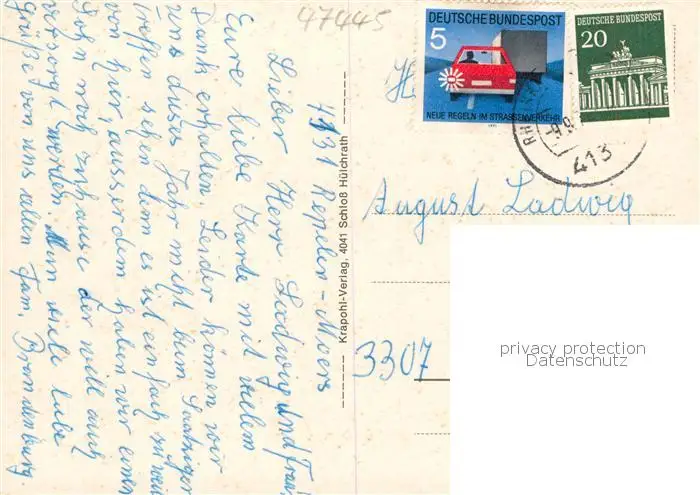 47445
4131 Repelen-Moers
Lieber Herr Ladwig und Frau,
Eure liebe Karte mit vielem
Dank erhalten. Leider können wir
uns dieses Jahr nicht beim Saatziger
treffen sehen denn es ist einfach zu weit
von hier, ausserdem haben wir einen
Sohn noch zuhause der will auch
versorgt werden. Nun viele liebe
Grüße von uns allen Fam. Brandenburg.
Krapohl-Verlag, 4041 Schloß Hülchrath
DEUTSCHE BUNDESPOST
5
NEUE REGELN IM STRASSENVERKEHR
DEUTSCHE BUNDESPOST
20
413
August Ladwig
3307
privacy protection
Datenschutz